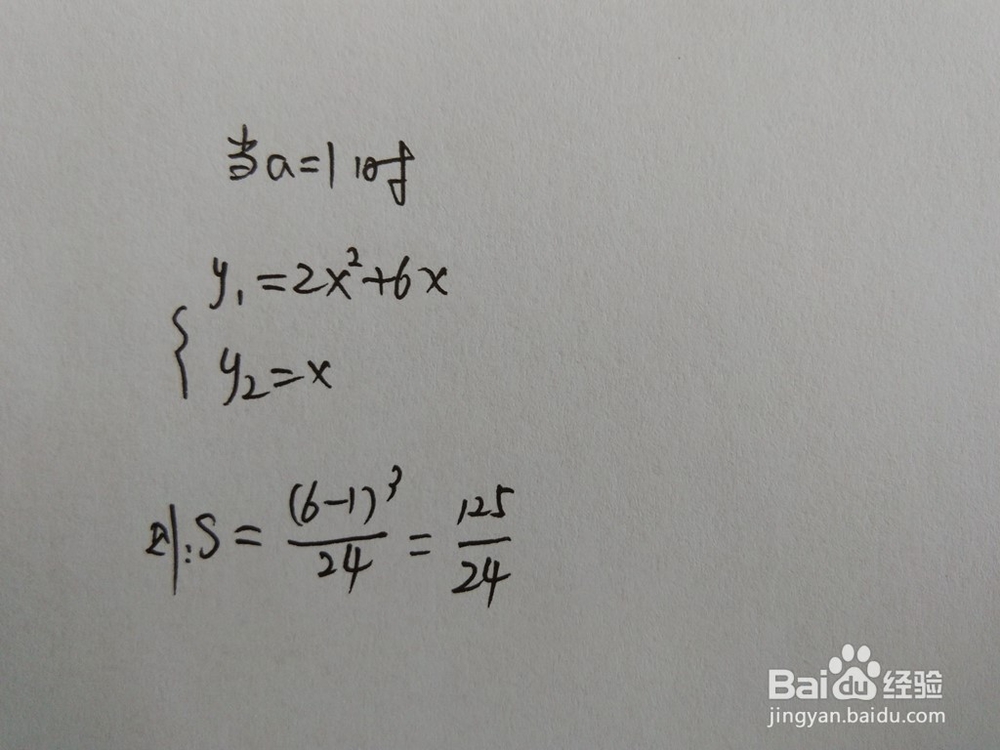 当a=1时
y₁=2x²+6x
y₂=x
则:S=(6-1)³/24=125/24
Baidu经验
jingyan.baidu.com